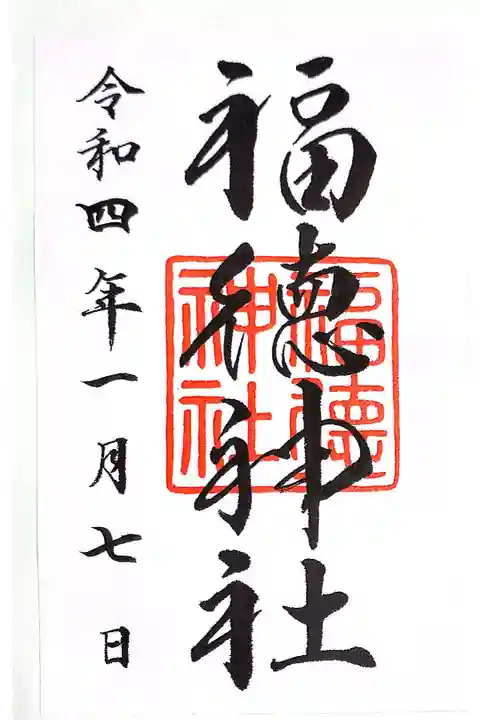 福徳神社
福徳神社
令和四年一月七日